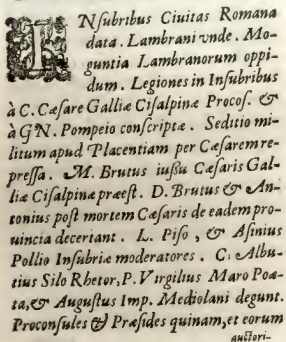 INſubribus Ciuitas Romana
data. Lambrani vnde. Mo-
guntia Lambranorum oppi-
dum. Legiones in Inſubribus
à C. Cæſare Galliæ Ciſalpinæ Procoſ. &
à GN. Pompeio conſcriptæ. Seditio mi-
litum apud Placentiam per Cæſarem re-
preſſa. M. Brutus iuſſu Cæſaris Gal-
liæ Ciſalpinæ præeſt. D. Brutus & An-
tonius poſt mortem Cæſaris de eadem pro-
uincia decertant. L. Piſo, & Aſinius
Pollio Inſubriæ moderatores. C. Albu-
tius Silo Rhetor, P. Virgilius Maro Poæ-
ta, & Auguſtus Imp. Mediolani degunt.
Proconſules & Præſides quinam, et eorum
auctori-